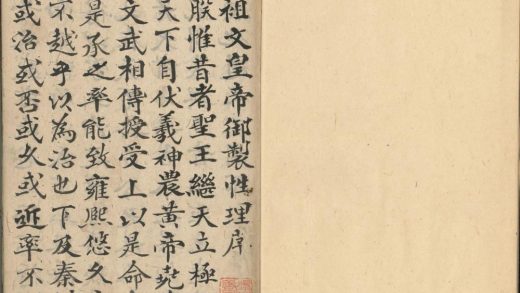 祖文皇帝御製性理序
朕惟昔者聖王繼天立極
天下自伏羲神農黃帝堯
文武相傳授受上以是命
是承之率能致雍熙悠久
不越乎以為治也下及秦
或治或否或久或近率不